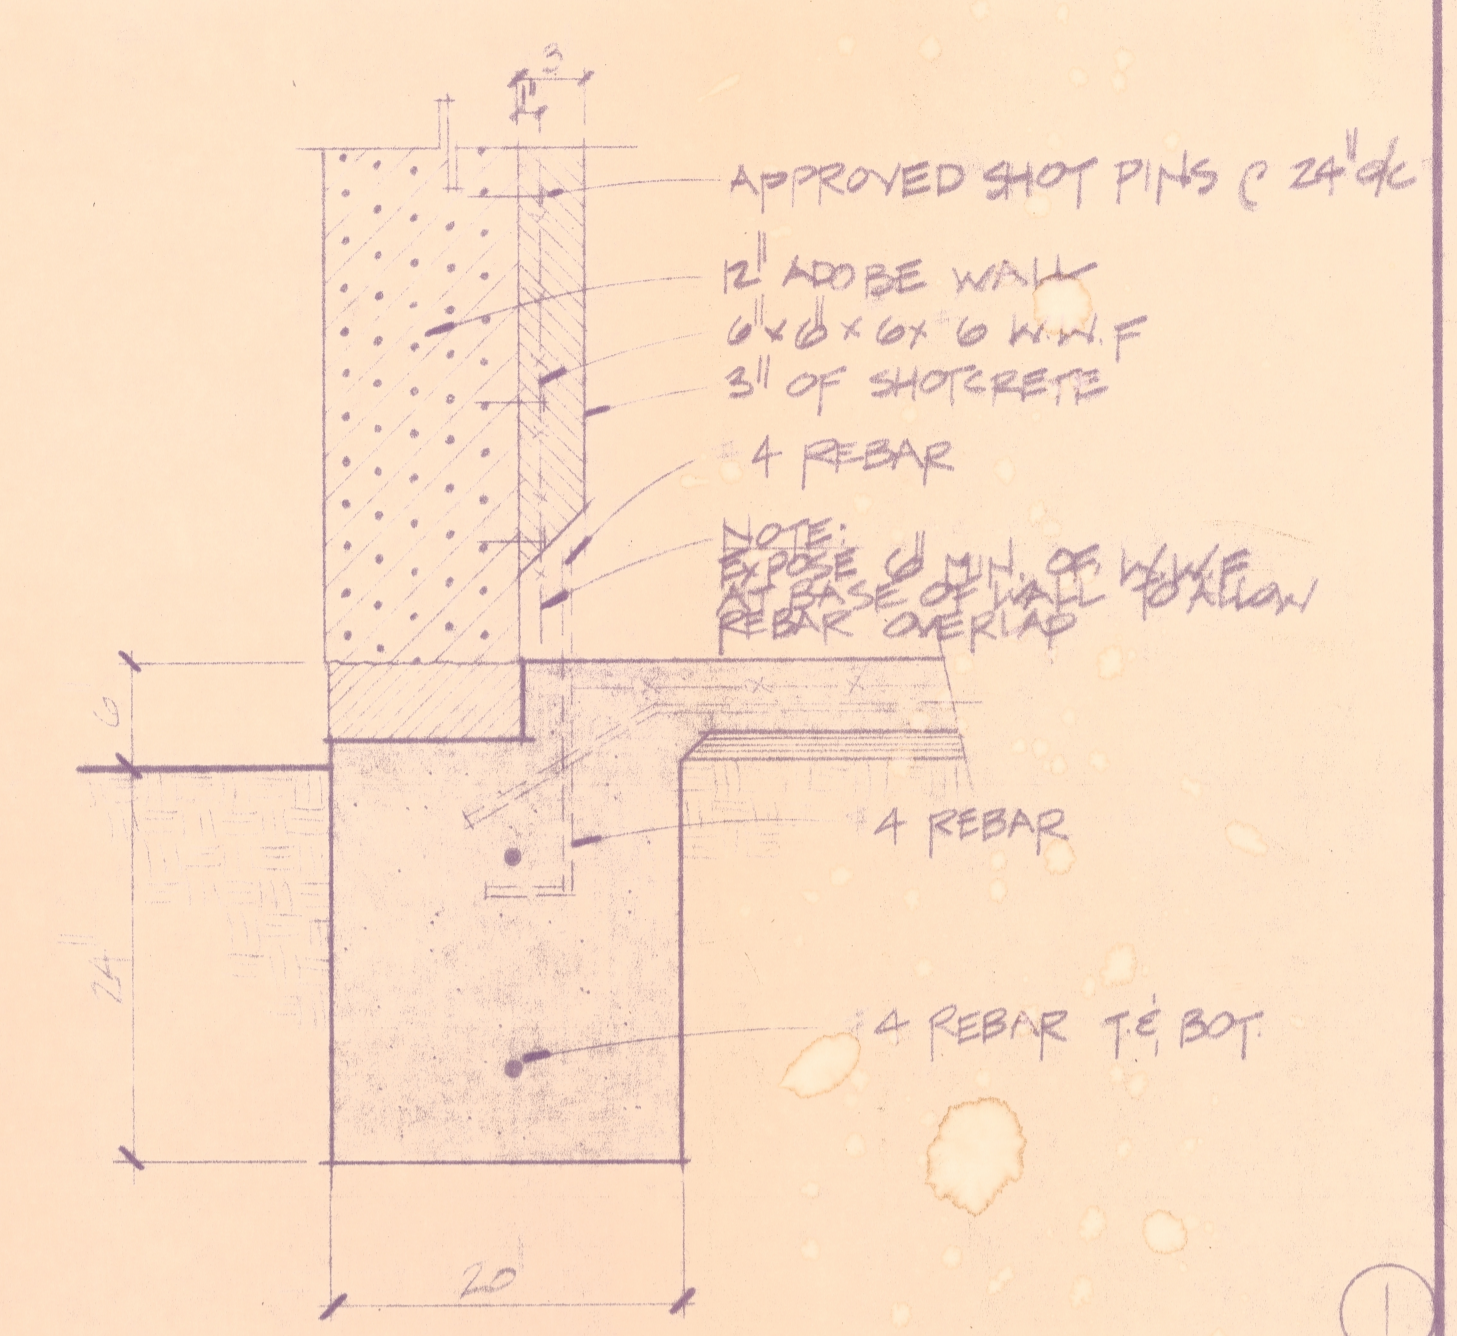 3
1"
APPROVED SHOT PINS @ 24" o/c
12" ADOBE WALL
6" x 6" x 6 x 6 W.W.F
3" OF SHOTCRETE
#4 REBAR
NOTE:
EXPOSE 6" MIN. OF W.W.F
AT BASE OF WALL TO ALLOW
REBAR OVERLAP
6
#4 REBAR
24"
#4 REBAR T. & BOT.
20"
1